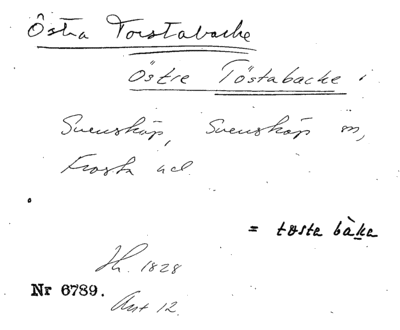 Östra Torstabacke
Östre Töstabacke i
Svensköp, Svensköp sn,
Frosta hd
= tøsta bàka
Jb. 1828
Nr 6789.
Ant 12